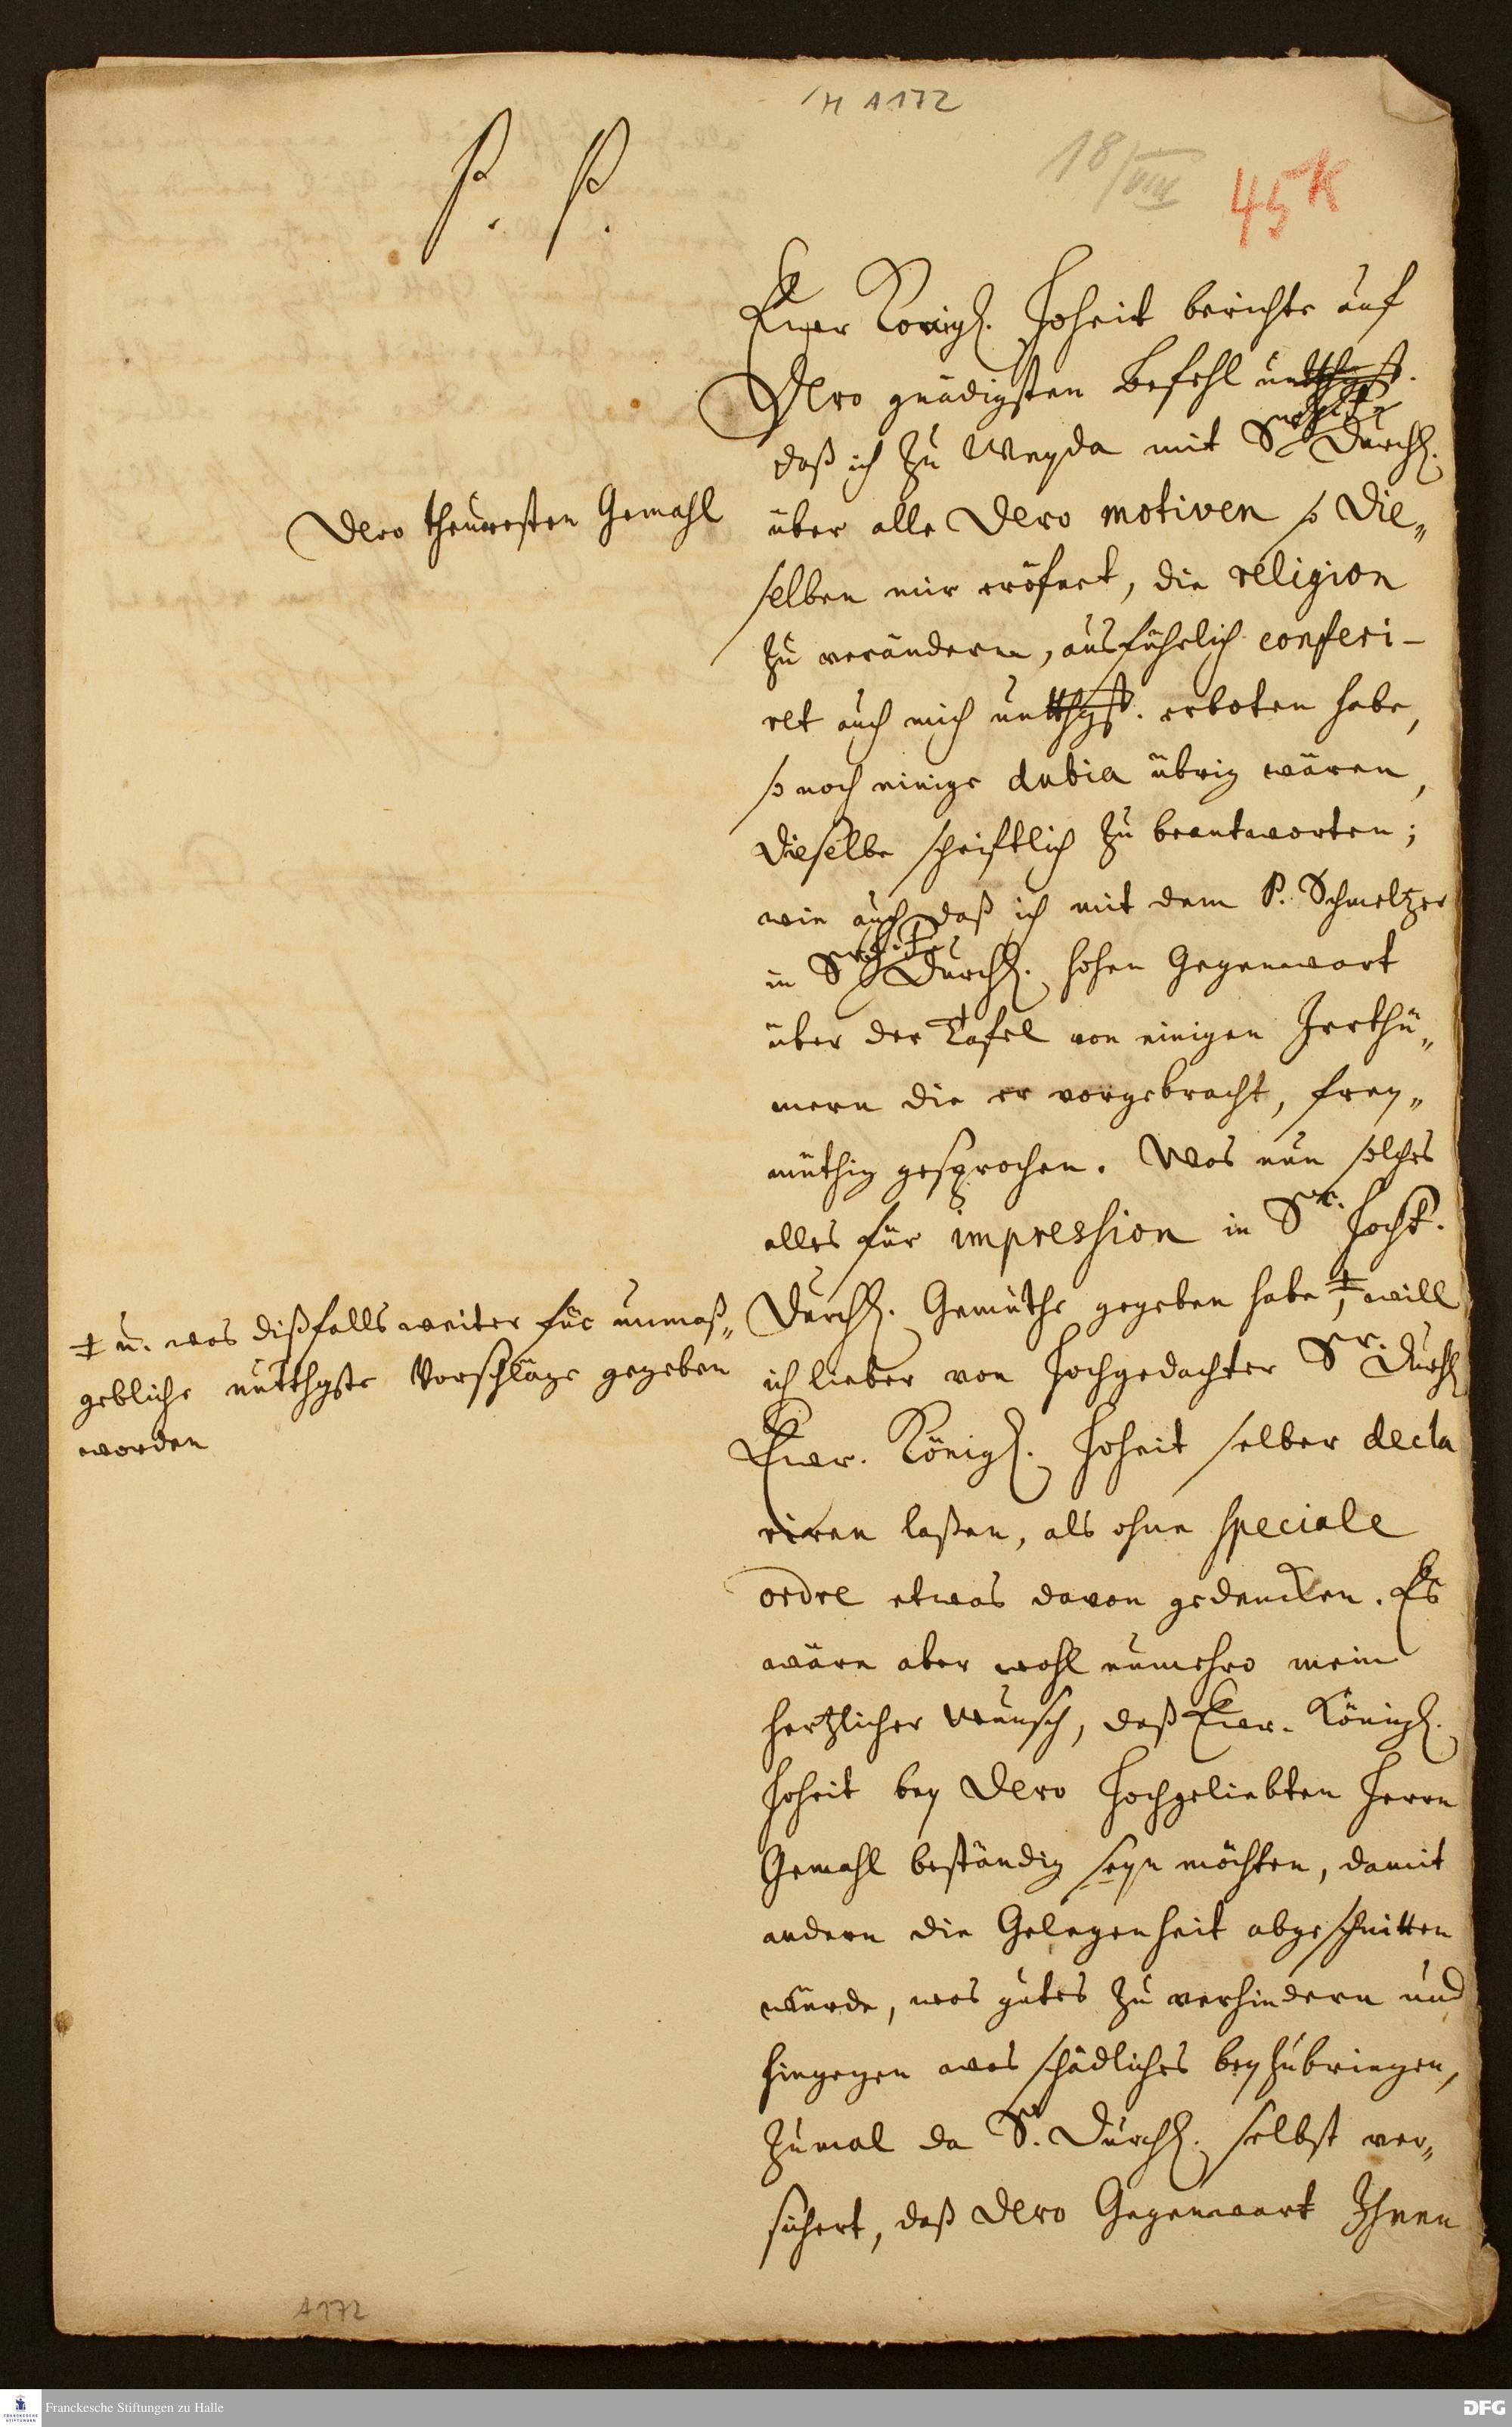 H A172
18/VIII
45K
P. P.
Ewer Königl. Hoheit berichte auf
Dero gnädigsten Befehl untthgst.
daß ich zu Weyda mit Sr Durchl.
Dero theuresten Gemahl
über alle Dero motiven so Die„
selben mir eröfnet, die religion
zu verändern, ausführlich conferi-
ret auch mich untthgst. erboten habe,
so noch einige dubia übrig wären,
dieselbe schriftlich zu beantworten;
wie auch daß ich mit dem P. Schmeltzer
in Sr Durchl. hohen Gegenwart
über der Tafel von einigen Irrthü„
mern die er vorgebracht, frey„
müthig gesprochen. Was nun solches
alles für impression in Sr. Hochf.
Durchl. Gemüthe gegeben habe ‡, will
‡ u. was dißfalls weiter für unmaß„
gebliche untthgste Vorschläge gegeben
worden
ich lieber von Hochgedachter Sr. Durchl
Ewr. Königl. Hoheit selber decla
riren laßen, als ohne speciale
ordre etwas davon gedencken. Es
wäre aber wohl numehro mein
hertzlicher Wunsch, daß Ewr. Königl.
Hoheit bey Dero Hochgeliebten Herrn
Gemahl beständig seyn möchten, damit
andern die Gelegenheit abgeschnitten
würde, was gutes zu verhindern und
hingegen was schädliches beyzubringen,
zumal da Sr. Durchl. selbst ver„
sichert, daß Dero Gegenwart Ihnen
A172
Franckesche Stiftungen zu Halle
DFG